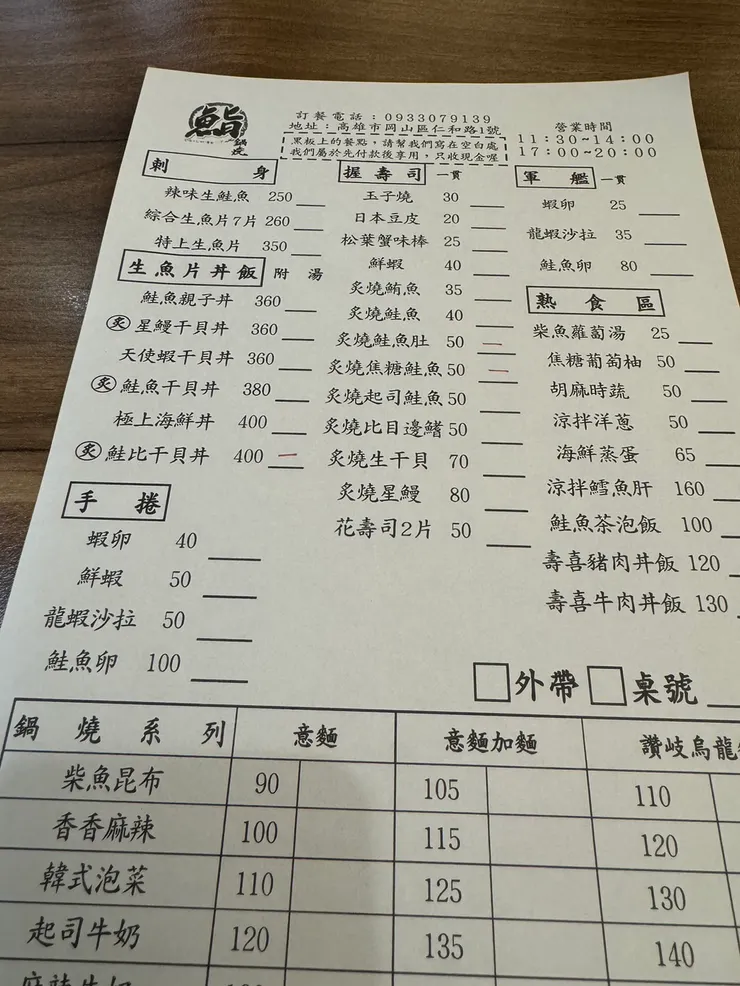 鮨
鍋燒
訂餐電話：0933079139
地址：高雄市岡山區仁和路1號
黑板上的餐點，請幫我們寫在空白處
我們屬於先付款後享用，只收現金喔
營業時間
11:30~14:00
17:00~20:00
刺身
辣味生鮭魚 250
綜合生魚片7片 260
特上生魚片 350
生魚片丼飯 附湯
鮭魚親子丼 360
炙 星鰻干貝丼 360
天使蝦干貝丼 360
炙 鮭魚干貝丼 380
極上海鮮丼 400
炙 鮭比干貝丼 400 一
手捲
蝦卵 40
鮮蝦 50
龍蝦沙拉 50
鮭魚卵 100
握壽司 一貫
玉子燒 30
日本豆皮 20
松葉蟹味棒 25
鮮蝦 40
炙燒鮪魚 35
炙燒鮭魚 40
炙燒鮭魚肚 50 一
炙燒焦糖鮭魚 50 一
炙燒起司鮭魚 50
炙燒比目邊鰭 50
炙燒生干貝 70
炙燒星鰻 80
花壽司2片 50
軍艦 一貫
蝦卵 25
龍蝦沙拉 35
鮭魚卵 80
熟食區
柴魚蘿蔔湯 25
焦糖葡萄柚 50
胡麻時蔬 50
涼拌洋蔥 50
海鮮蒸蛋 65
涼拌鱈魚肝 160
鮭魚茶泡飯 100
壽喜豬肉丼飯 120
壽喜牛肉丼飯 130
□外帶 □桌號
鍋燒系列 意麵 意麵加麵 讚岐烏龍
柴魚昆布 90 105 110
香香麻辣 100 115 120
韓式泡菜 110 125 130
起司牛奶 120 135 140